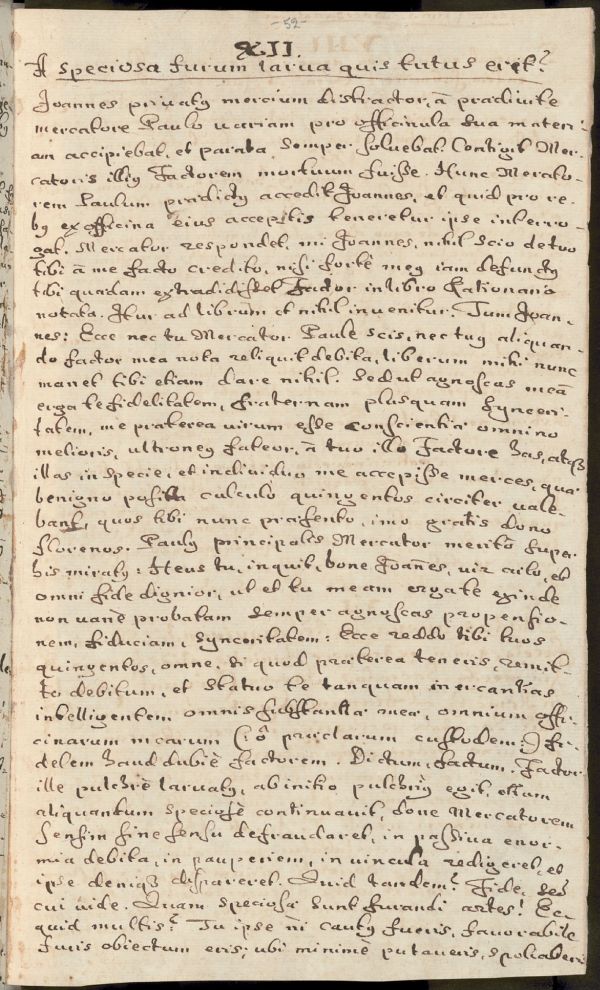 - 52 -
XII.
A speciosa furum larva quis tutus erit?
Joannes privatus mercium distractor, à prædivite
mercatore Paulo variam pro officinula sua materi-
am accipiebat, et parata semper solvebat. Contigit Mer-
catoris illius Factorem mortuum fuisse. Hunc Mercato-
rem Paulum prædictus accedit Joannes, et quid pro re-
bus ex officina eius acceptis teneretur ipse interro-
gat. Mercator respondet, mi Joannes, nihil scio de tuo
tibi à me facto credito, nisi fortè meus iam defunctus
tibi quædam extradidisset Factor in libro Rationario
notata. Itur ad librum et nihil invenitur. Tum Joan-
nes: Ecce nec tu Mercator Paule scis, nec tuus aliquan-
do factor mea nota reliquit debita, liberum mihi nunc
manet tibi etiam dare nihil. Sed ut agnoscas meã
erga te fidelitatem, fraternam plusquam synceri-
tatem, me præterea virum esse conscientiæ omnino
melioris, ultroneus fateor, à tuo illo Factore has, atq3
illas in specie, et individuo me accepisse merces, quæ
benigno posita calculo quingentos circiter vale-
bant, quos tibi nunc præsento, imo gratis dono
florenos. Paulus principalis Mercator meritò super
his miratus: Heus tu, inquit, bone Joãnes, vir ailo, et
omni fide dignior, ut et tu meam erga te exinde
non vanè probatam semper agnoscas propensio-
nem, fiduciam, synceritatem: Ecce reddo tibi tuos
quingentos, omne, si quod præterea teneris, remit-
to debitum, et statuo te tanquam in ercantias
intelligentem omnis substantiæ meæ, omnium offi-
cinarum mearum (: ô præclarum custodem :) fi-
delem haud dubiè factorem. Dictum, factum. Factor
ille pulchrè larvatus, ab initio pulchrius egit, etiam
aliquantum speciosè continuavit, donec Mercatorem
sensim sine sensu defraudaret, in passiva enor-
mia debita, in pauperiem, in vincula redigeret, et
ipse deniq3 dispareret. Quid tandem? Fide, sed
cui vide. Quam speciosæ sunt furandi artes! Ec-
quid multis? Tu ipse ni cautus fueris, favorabile
furis obiectum eris; ubi minimè putaveris, spoliaberis